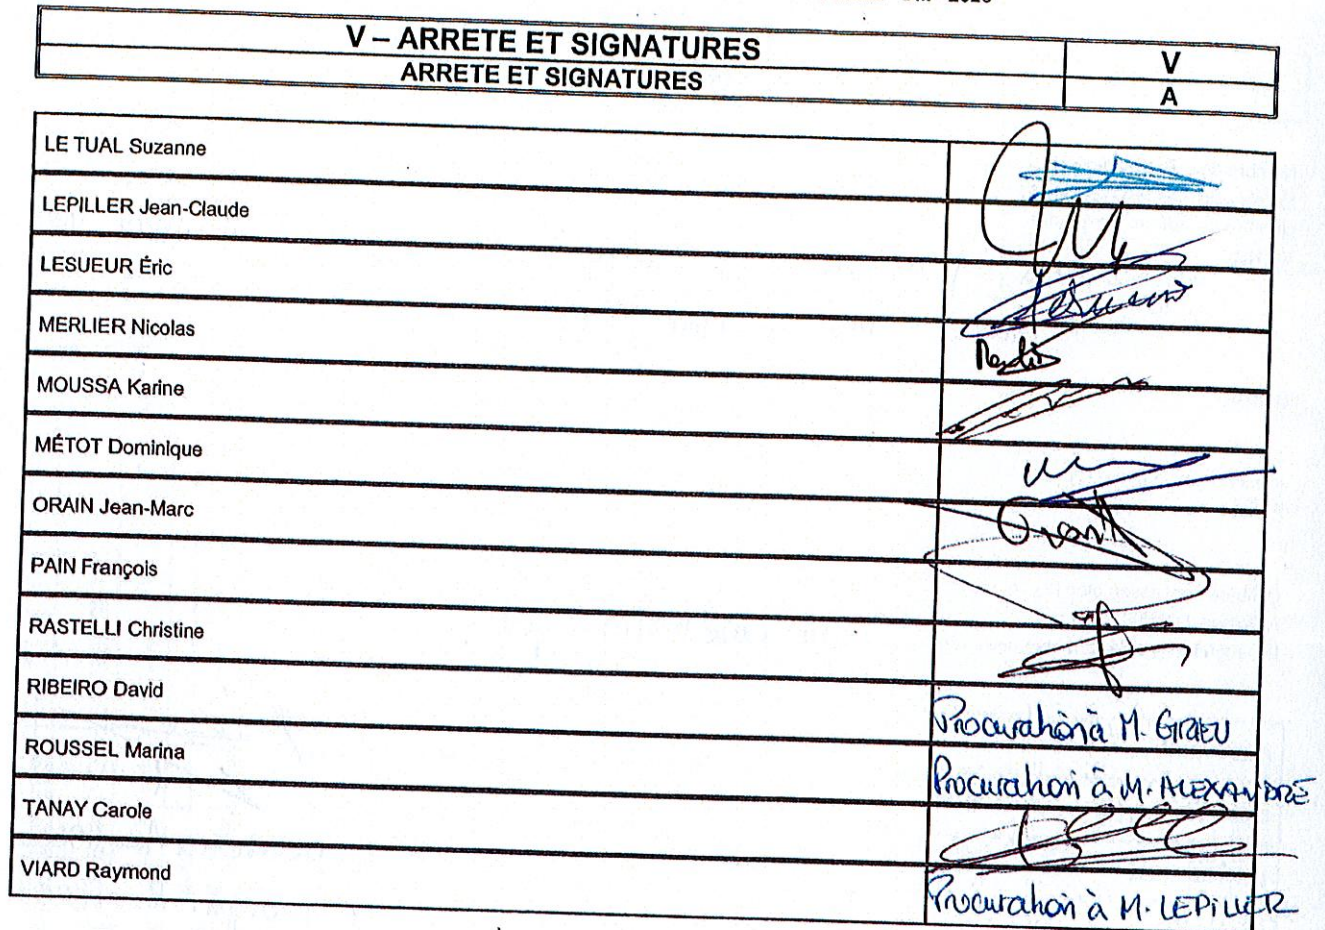 V – ARRETE ET SIGNATURES V
ARRETE ET SIGNATURES A
LE TUAL Suzanne
LEPILLER Jean-Claude
LESUEUR Éric
MERLIER Nicolas
MOUSSA Karine
MÉTOT Dominique
ORAIN Jean-Marc
PAIN François
RASTELLI Christine
RIBEIRO David Procuration à M. GRIEU
ROUSSEL Marina Procuration à M. ALEXANDRE
TANAY Carole
VIARD Raymond Procuration à M. LEPILLER